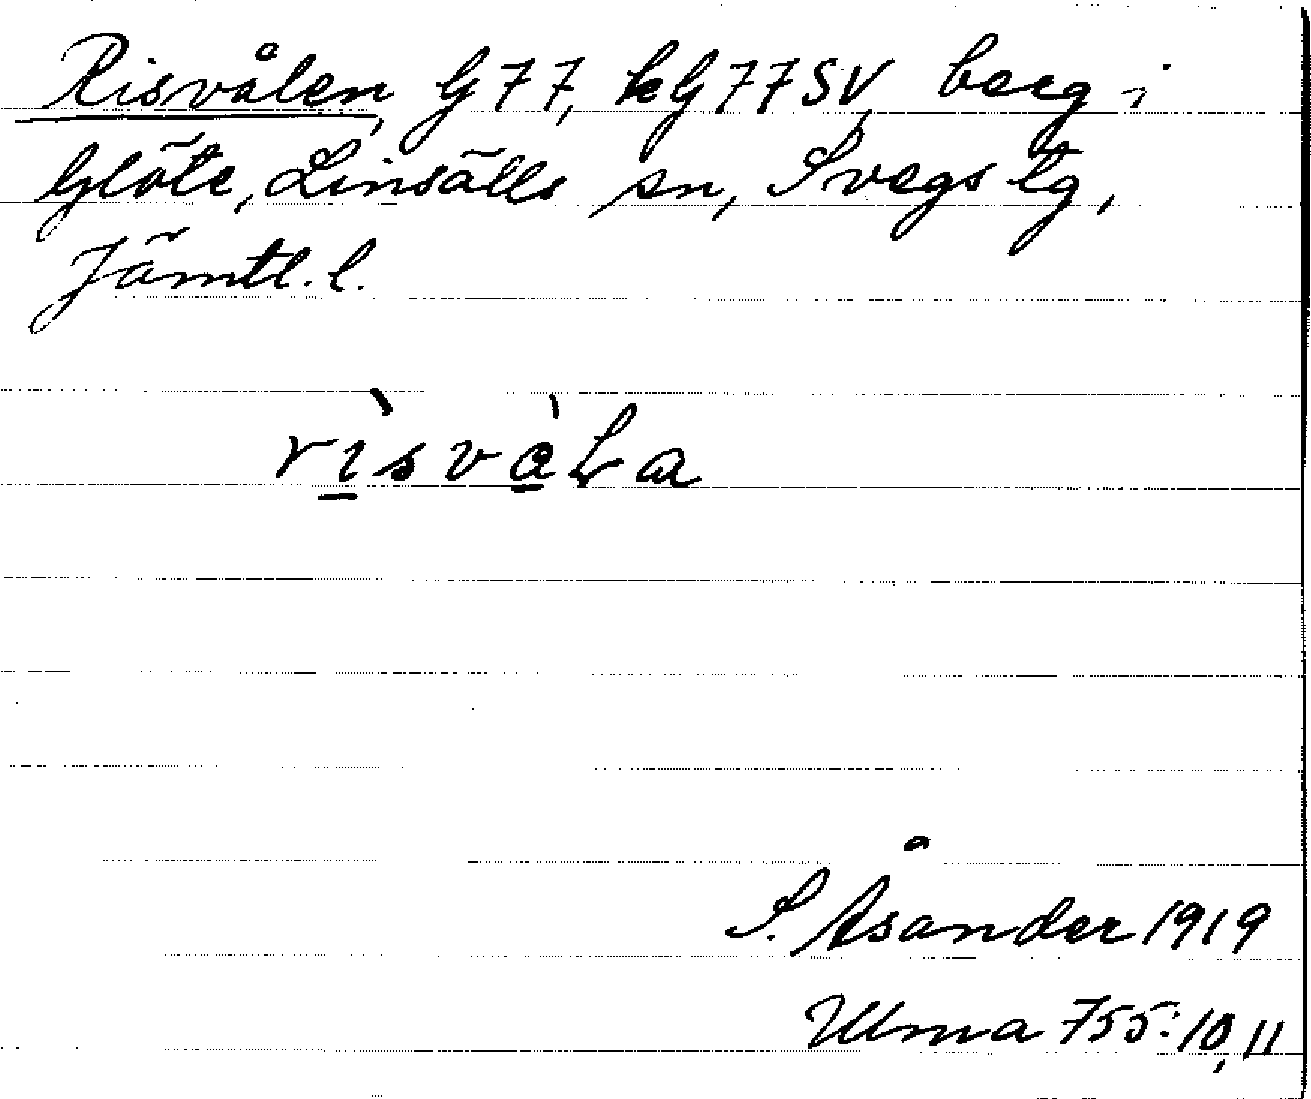 Risvålen, G77, kG77SV, berg i
Glöte, Linsälls sn, Svegs tg,
Jämtl. l.
rìsvàLa
S. Åsander 1919
Ulma 755:10, 11